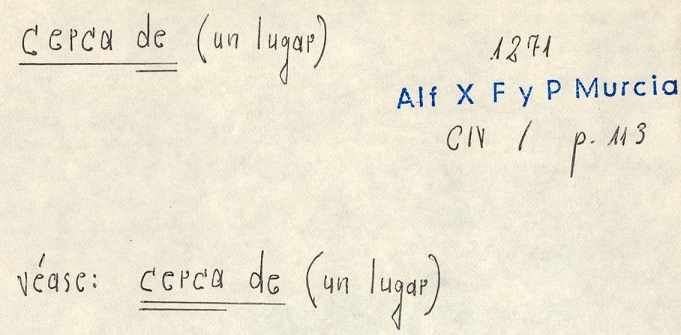 cerca de (un lugar)
1271
Alf X F y P Murcia
CIV / p. 113
véase: cerca de (un lugar)